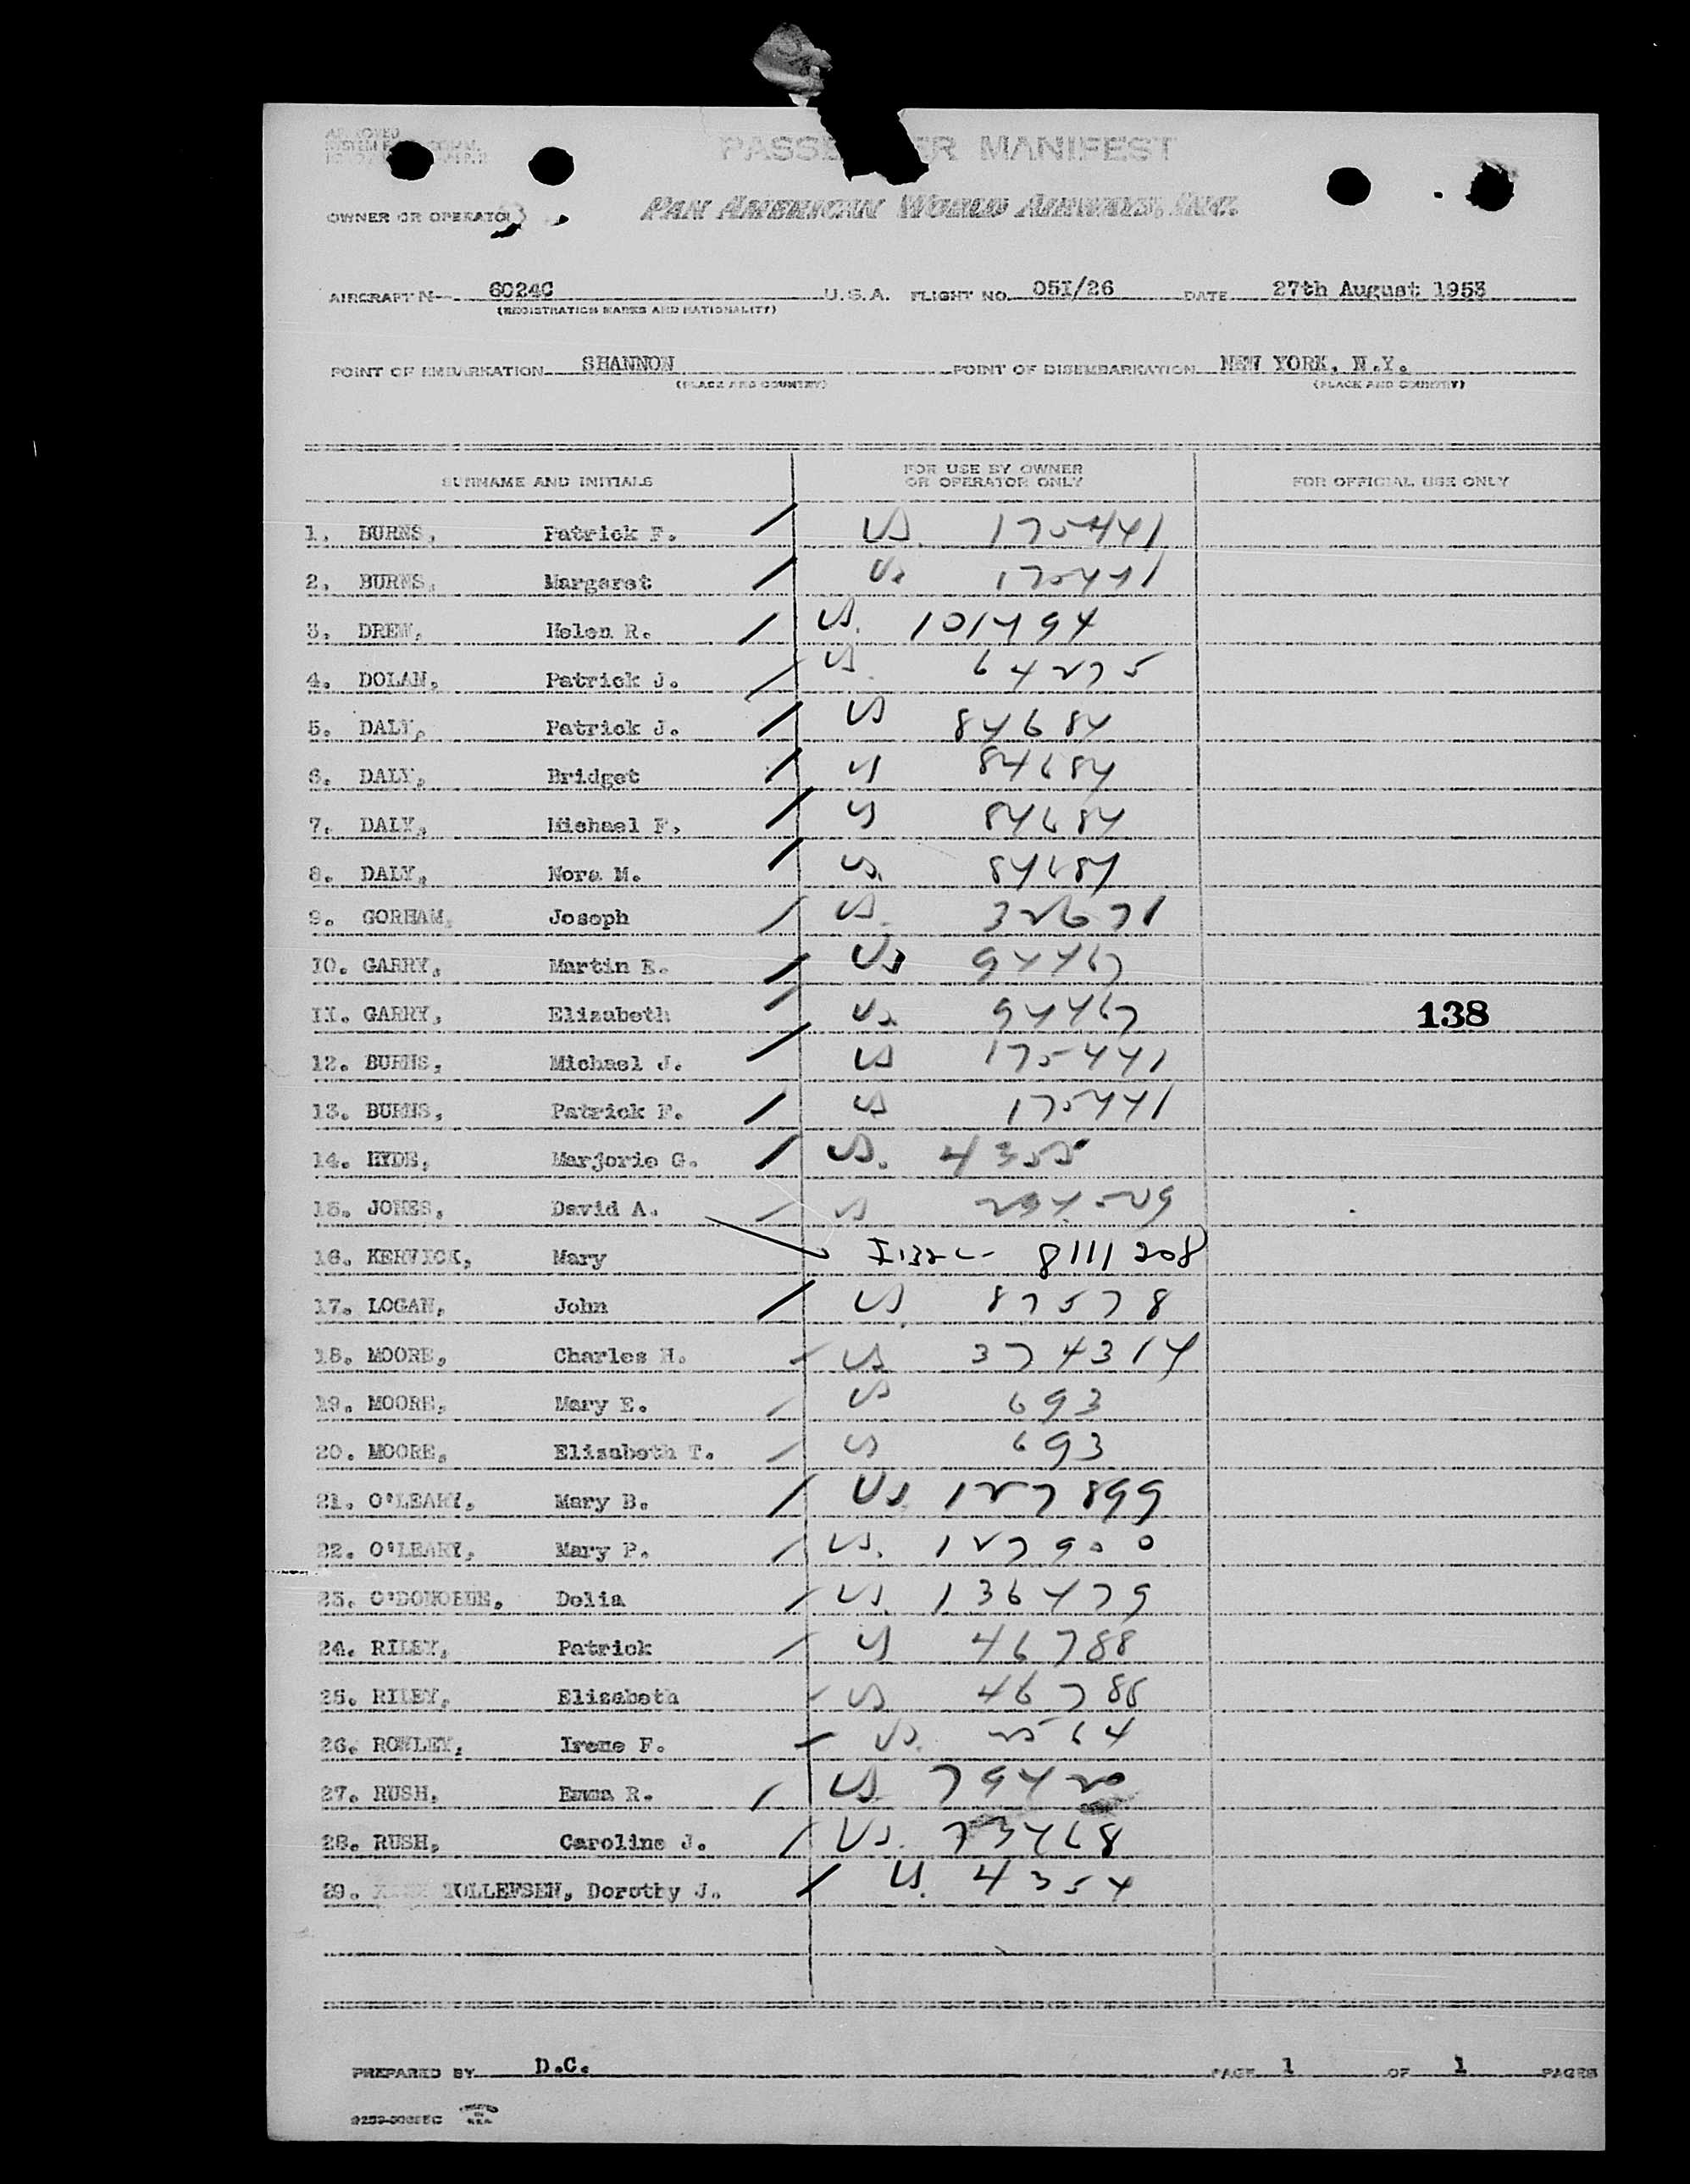 APPROVED
PASSENGER MANIFEST
OWNER OR OPERATOR PAN AMERICAN WORLD AIRWAYS, INC.
AIRCRAFT N- 6024C U.S.A. FLIGHT NO. 05I/26 DATE 27th August 1953
(REGISTRATION MARKS AND NATIONALITY)
POINT OF EMBARKATION SHANNON POINT OF DISEMBARKATION NEW YORK, N.Y.
(PLACE AND COUNTRY) (PLACE AND COUNTRY)
SURNAME AND INITIALS FOR USE BY OWNER OR OPERATOR ONLY FOR OFFICIAL USE ONLY
1. BURNS, Patrick F. US. 175441
2. BURNS, Margaret US 175441
3. DREW, Helen R. US. 101494
4. DOLAN, Patrick J. US. 64275
5. DALY, Patrick J. US 84684
6. DALY, Bridget US 84684
7. DALY, Michael F. US 84684
8. DALY, Nora M. US. 84684
9. GORHAM, Joseph US. 32671
10. GARRY, Martin E. US 94467
11. GARRY, Elizabeth US 94467 138
12. BURNS, Michael J. US 175441
13. BURNS, Patrick F. US 175441
14. HYDE, Marjorie G. US. 4355
15. JONES, David A. US
16. KERVICK, Mary 8111208
17. LOGAN, John US 87578
18. MOORE, Charles H. US 374314
19. MOORE, Mary E. US 693
20. MOORE, Elizabeth T. US 693
21. O'LEARY, Mary B. US 127899
22. O'LEARY, Mary P. US. 127900
23. O'DONOHUE, Delia US. 136479
24. RILEY, Patrick US 46788
25. RILEY, Elizabeth US 46788
26. ROWLEY, Irene F. US. 2564
27. RUSH, Emma R. US 79420
28. RUSH, Caroline J. US. 73468
29. TOLLEFSEN, Dorothy J. US. 4354
PREPARED BY D.C. PAGE 1 OF 1 PAGES